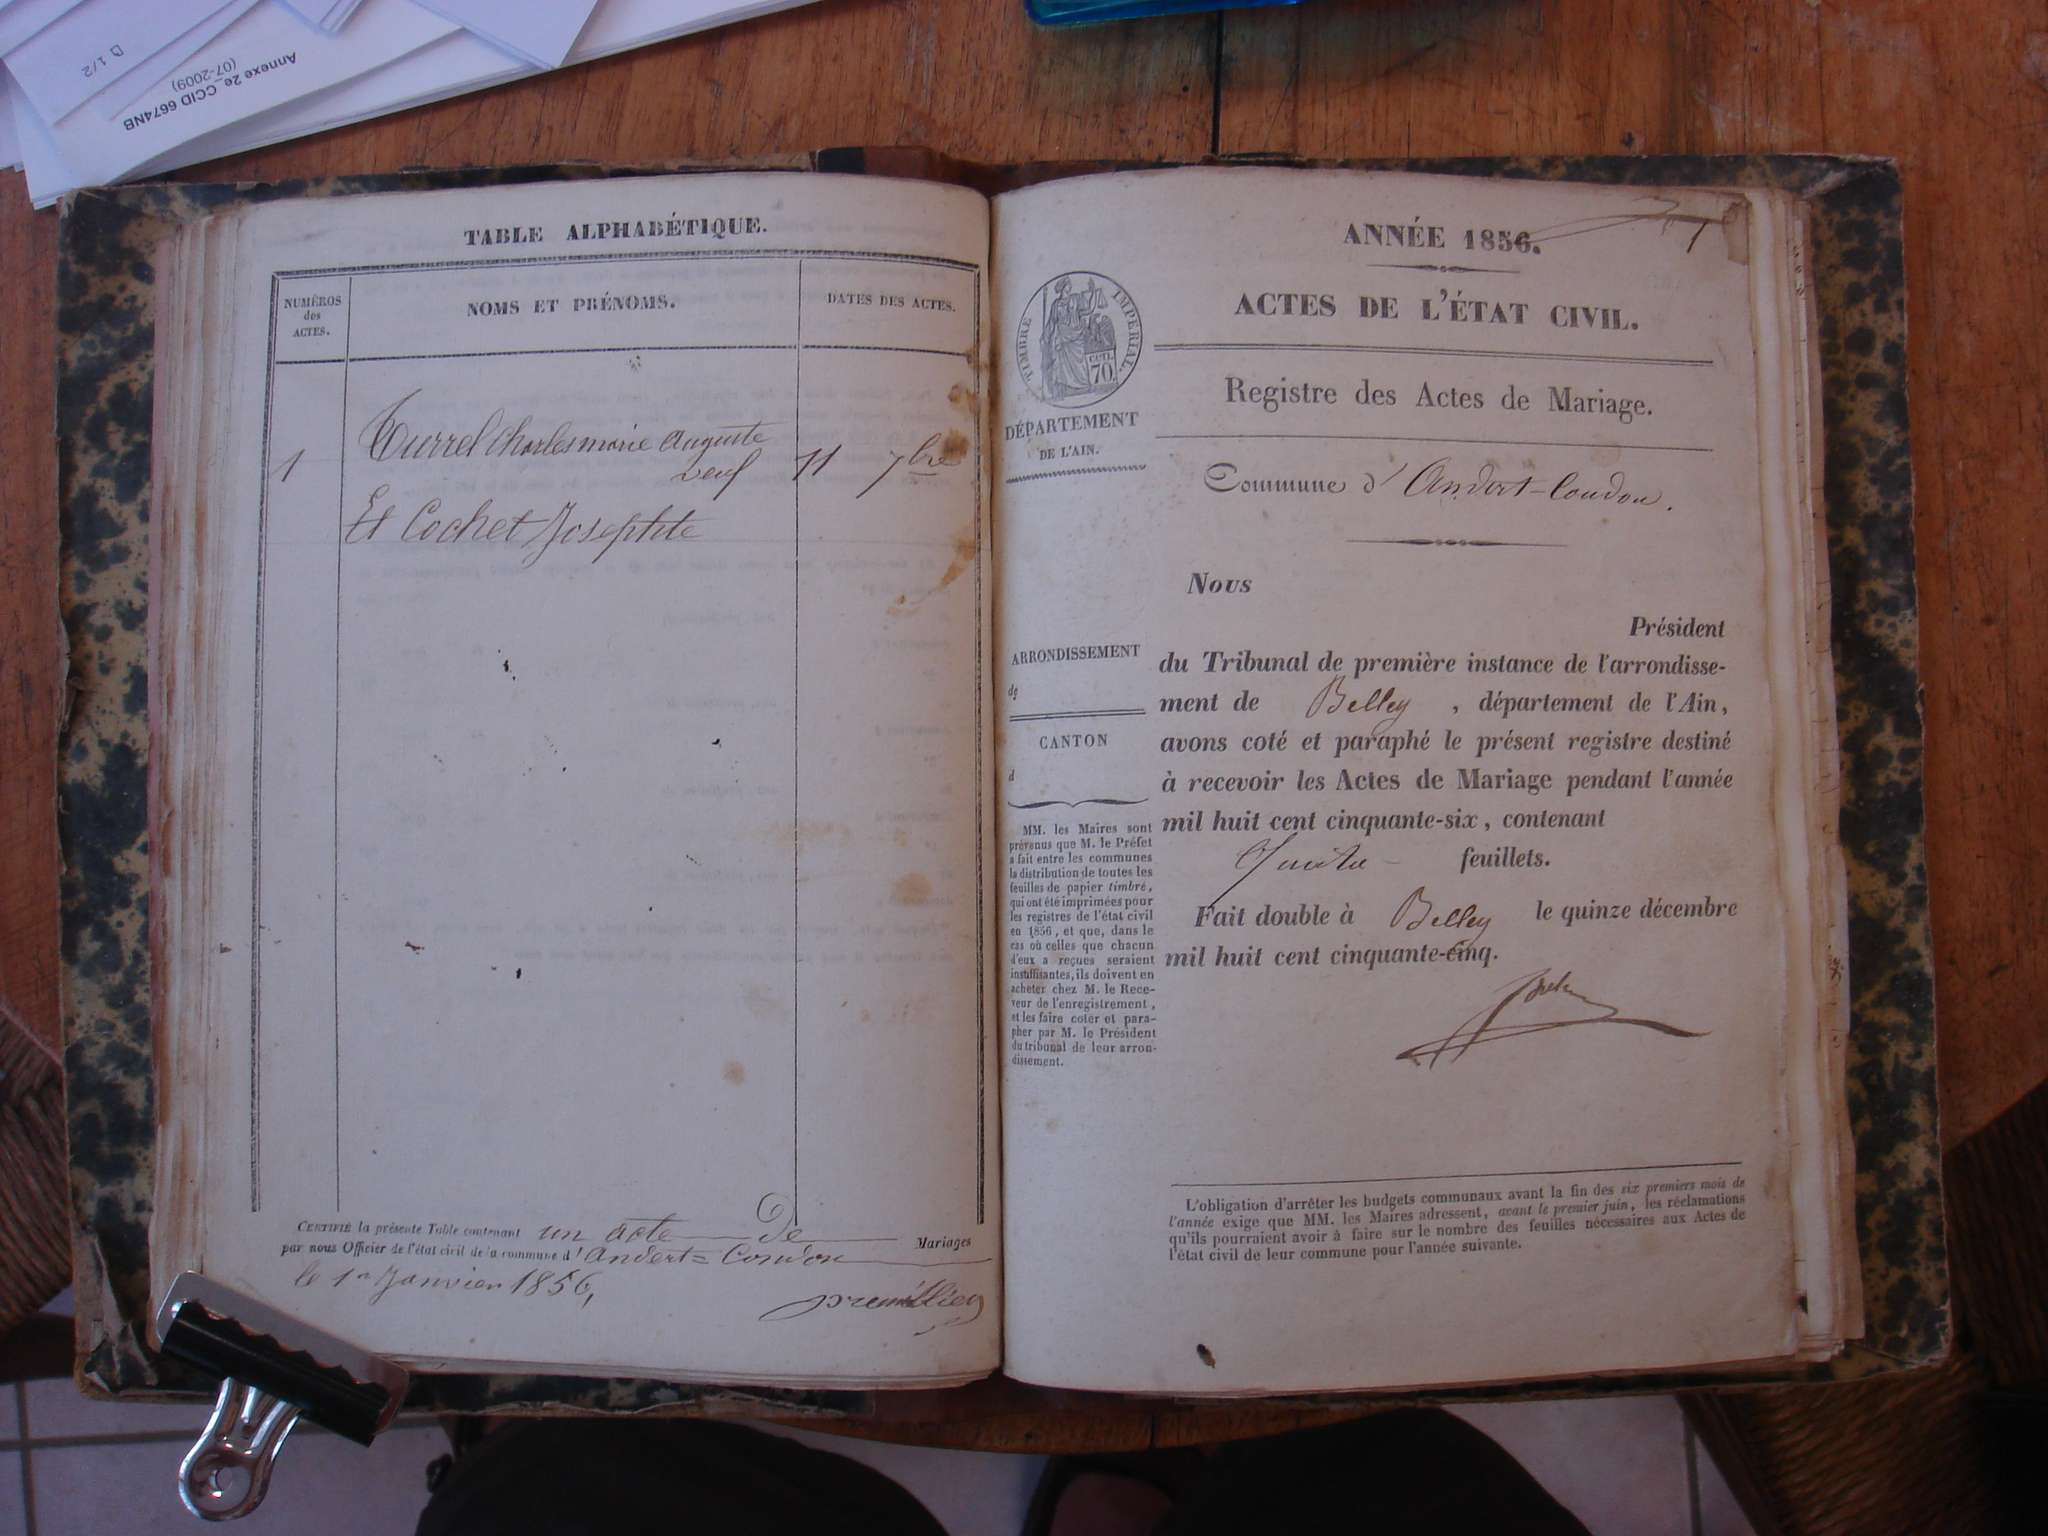 Annexe 2e_CCID 6674NB
(07-2009)
D 1/2
TABLE ALPHABÉTIQUE.
NUMÉROS
des
ACTES.
NOMS ET PRÉNOMS.
DATES DES ACTES.
1
Turrel Charles marie Auguste
veuf
11 7bre
Et Cochet Josephte
CERTIFIÉ la présente Table contenant un acte De Mariages
par nous Officier de l'état civil de la commune d'Andert=Condon
le 1er Janvier 1856,
premillieu
ANNÉE 1856.
1
ACTES DE L'ÉTAT CIVIL.
TIMBRE IMPÉRIAL.
CCTI.
70.
DÉPARTEMENT
DE L'AIN.
Registre des Actes de Mariage.
Commune d'Andert-Condon.
ARRONDISSEMENT
de
CANTON
d
MM. les Maires sont
prévenus que M. le Préfet
a fait entre les communes
la distribution de toutes les
feuilles de papier timbré,
qui ont été imprimées pour
les registres de l'état civil
en 1856, et que, dans le
cas où celles que chacun
d'eux a reçues seraient
insuffisantes, ils doivent en
acheter chez M. le Rece-
veur de l'enregistrement,
et les faire coter et para-
pher par M. le Président
du tribunal de leur arron-
dissement.
Nous
Président
du Tribunal de première instance de l'arrondisse-
ment de Belley, département de l'Ain,
avons coté et paraphé le présent registre destiné
à recevoir les Actes de Mariage pendant l'année
mil huit cent cinquante-six, contenant
feuillets.
Fait double à Belley le quinze décembre
mil huit cent cinquante-cinq.
L'obligation d'arrêter les budgets communaux avant la fin des six premiers mois de
l'année exige que MM. les Maires adressent, avant le premier juin, les réclamations
qu'ils pourraient avoir à faire sur le nombre des feuilles nécessaires aux Actes de
l'état civil de leur commune pour l'année suivante.